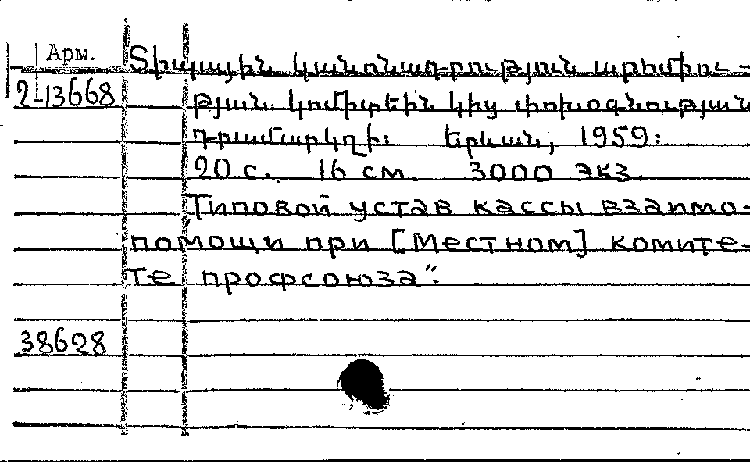 Арм.
Տիպային կանոնադրություն արհմիու-
2-13668
թյան կոմիտեին կից փոխօգնության
դրամարկղի։ Երևան, 1959։
20 с. 16 см. 3000 экз.
"Типовой устав кассы взаимо-
помощи при [местном] комите-
те профсоюза".
38628